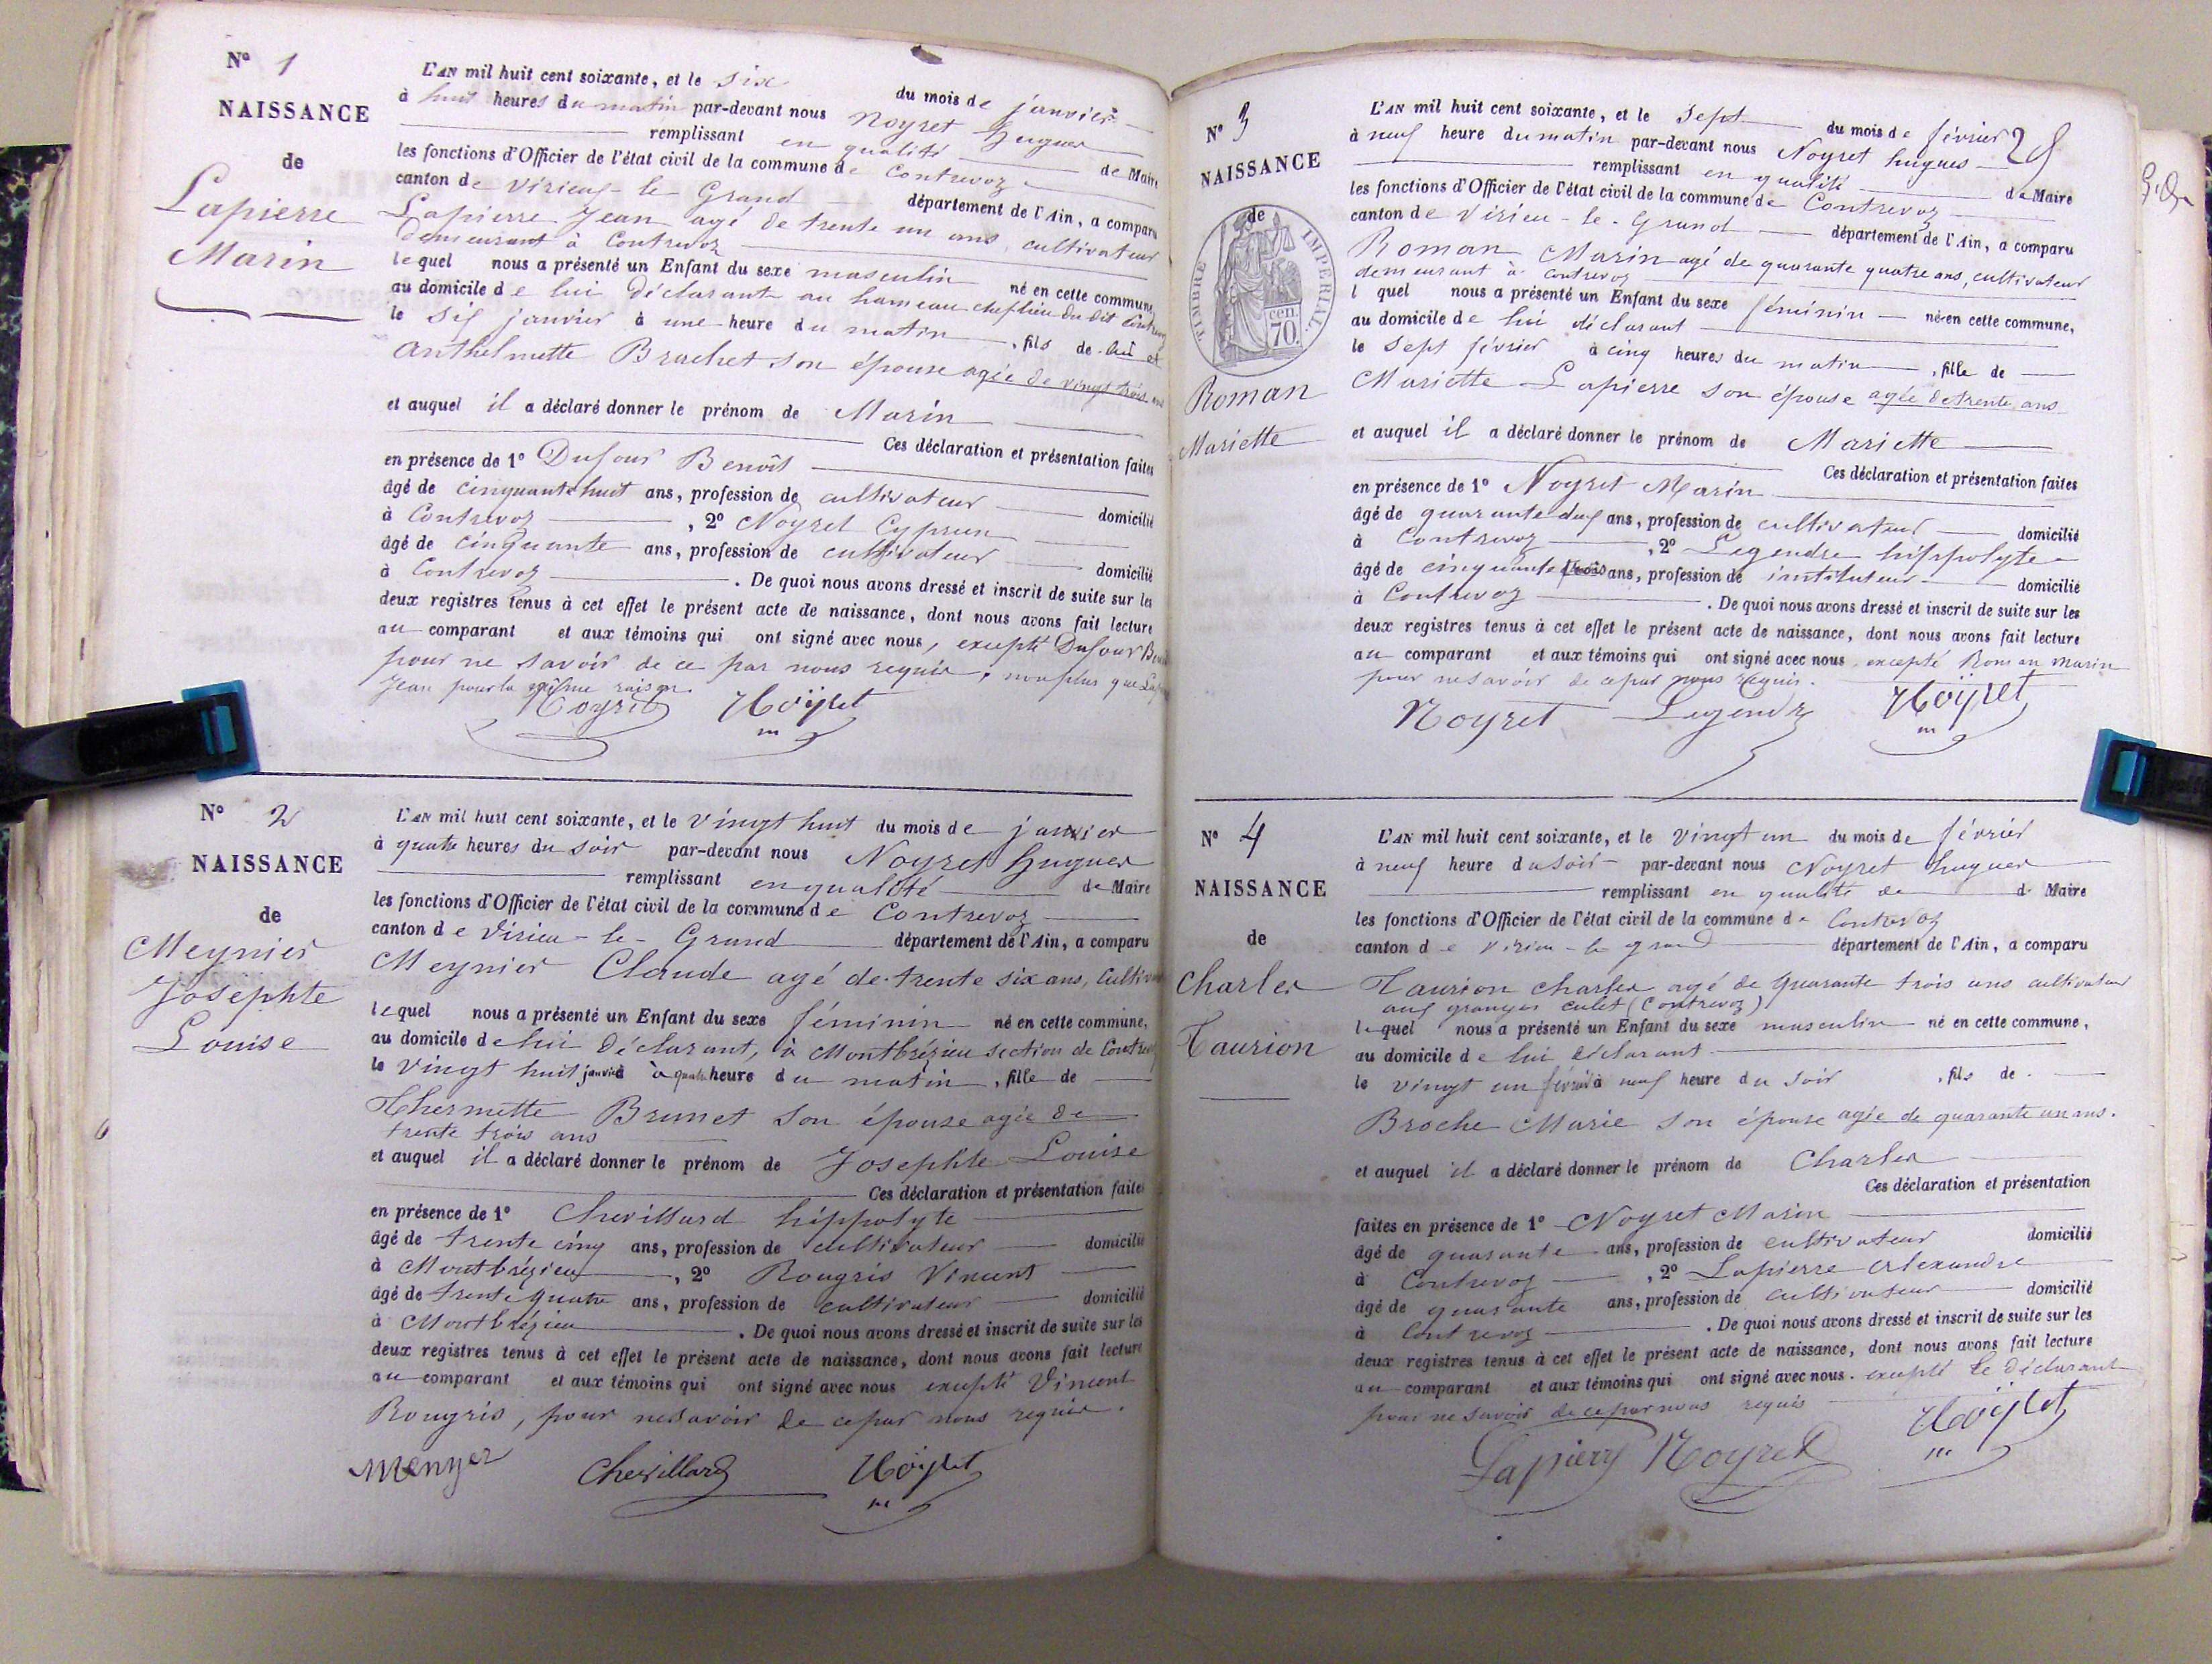 N° 1
NAISSANCE
de
Lapierre
Marin
L'AN mil huit cent soixante, et le six du mois de janvier
à huit heures du matin par-devant nous Noyret hugues
remplissant en qualité de Maire
les fonctions d'Officier de l'état civil de la commune de Contrevoz
canton de Virieux-le-Grand département de l'Ain, a comparu
Lapierre Jean agé de trente un ans, cultivateur
demeurant à Contrevoz
lequel nous a présenté un Enfant du sexe masculin né en cette commune,
au domicile de lui déclarant au hameau chef lieu du dit Contrevoz
le six janvier à une heure du matin, fils de lui et
anthelmette Brachet son épouse agée de vingt trois ans
et auquel il a déclaré donner le prénom de Marin
Ces déclaration et présentation faites
en présence de 1° Dufour Benoît
âgé de cinquante huit ans, profession de cultivateur domicilié
à Contrevoz, 2° Noyret Cyprien
âgé de cinquante ans, profession de cultivateur domicilié
à Contrevoz. De quoi nous avons dressé et inscrit de suite sur les
deux registres tenus à cet effet le présent acte de naissance, dont nous avons fait lecture
au comparant et aux témoins qui ont signé avec nous, excepté Dufour
pour ne savoir de ce par nous requis, non plus que
Jean pour la même raison.
Noyret Noÿret
m
N° 2
NAISSANCE
de
Meynier
Josephte
Louise
L'AN mil huit cent soixante, et le vingt huit du mois de janvier
à quatre heures du soir par-devant nous Noyret hugues
remplissant en qualité de Maire
les fonctions d'Officier de l'état civil de la commune de Contrevoz
canton de Virieu-le-Grand département de l'Ain, a comparu
Meynier Claude agé de trente six ans, Cultiv
lequel nous a présenté un Enfant du sexe féminin né en cette commune,
au domicile de lui déclarant, à Montbrézieu section de Contrevoz
le vingt huit janvier à quatre heure du matin, fille de
Thermette Brunet son épouse agée de
trente trois ans
et auquel il a déclaré donner le prénom de Josephte Louise
Ces déclaration et présentation faites
en présence de 1° Chevillard hippolyte
âgé de trente cinq ans, profession de cultivateur domicilié
à Montbrézieu, 2° Rougris Vincent
âgé de trente quatre ans, profession de cultivateur domicilié
à Montbrézieu. De quoi nous avons dressé et inscrit de suite sur les
deux registres tenus à cet effet le présent acte de naissance, dont nous avons fait lecture
au comparant et aux témoins qui ont signé avec nous excepté Vincent
Rougris, pour ne savoir de ce par nous requis.
Chevillard Noÿret
m
N° 3
NAISSANCE
de
TIMBRE IMPERIAL
cen.
70.
Roman
Mariette
L'AN mil huit cent soixante, et le sept du mois de février
à neuf heure du matin par-devant nous Noyret hugues
remplissant en qualité de Maire
les fonctions d'Officier de l'état civil de la commune de Contrevoz
canton de Virieu-le-Grand département de l'Ain, a comparu
Roman Marin agé de quarante quatre ans, cultivateur
demeurant à contrevoz
l quel nous a présenté un Enfant du sexe féminin né en cette commune,
au domicile de lui déclarant
le sept février à cinq heures du matin, fille de
Mariette Lapierre son épouse agée de trente ans
et auquel il a déclaré donner le prénom de Mariette
Ces déclaration et présentation faites
en présence de 1° Noyret Marin
âgé de quarante deux ans, profession de cultivateur domicilié
à Contrevoz, 2° Legendre hippolyte
âgé de cinquante trois ans, profession de instituteur domicilié
à Contrevoz. De quoi nous avons dressé et inscrit de suite sur les
deux registres tenus à cet effet le présent acte de naissance, dont nous avons fait lecture
au comparant et aux témoins qui ont signé avec nous, excepté Roman Marin
pour ne savoir de ce par nous requis.
Noyret Legendre Noÿret
m
N° 4
NAISSANCE
de
Charles
Taurion
L'AN mil huit cent soixante, et le vingt un du mois de février
à neuf heure du soir par-devant nous Noyret hugues
remplissant en qualité de de Maire
les fonctions d'Officier de l'état civil de la commune de Contrevoz
canton de Virieu-le grand département de l'Ain, a comparu
Taurion charles agé de quarante trois ans cultivateur
aux granges culet (Contrevoz)
lequel nous a présenté un Enfant du sexe masculin né en cette commune,
au domicile de lui déclarant
le vingt un février à neuf heure du soir, fils de
Broche Marie son épouse agée de quarante un ans.
et auquel il a déclaré donner le prénom de Charles
Ces déclaration et présentation
faites en présence de 1° Noyret Marin
âgé de quarante ans, profession de cultivateur domicilié
à Contrevoz, 2° Lapierre Alexandre
âgé de quarante ans, profession de cultivateur domicilié
à Contrevoz. De quoi nous avons dressé et inscrit de suite sur les
deux registres tenus à cet effet le présent acte de naissance, dont nous avons fait lecture
au comparant et aux témoins qui ont signé avec nous. excepté le déclarant
pour ne savoir de ce par nous requis
Lapierre Noyret Noÿret
m